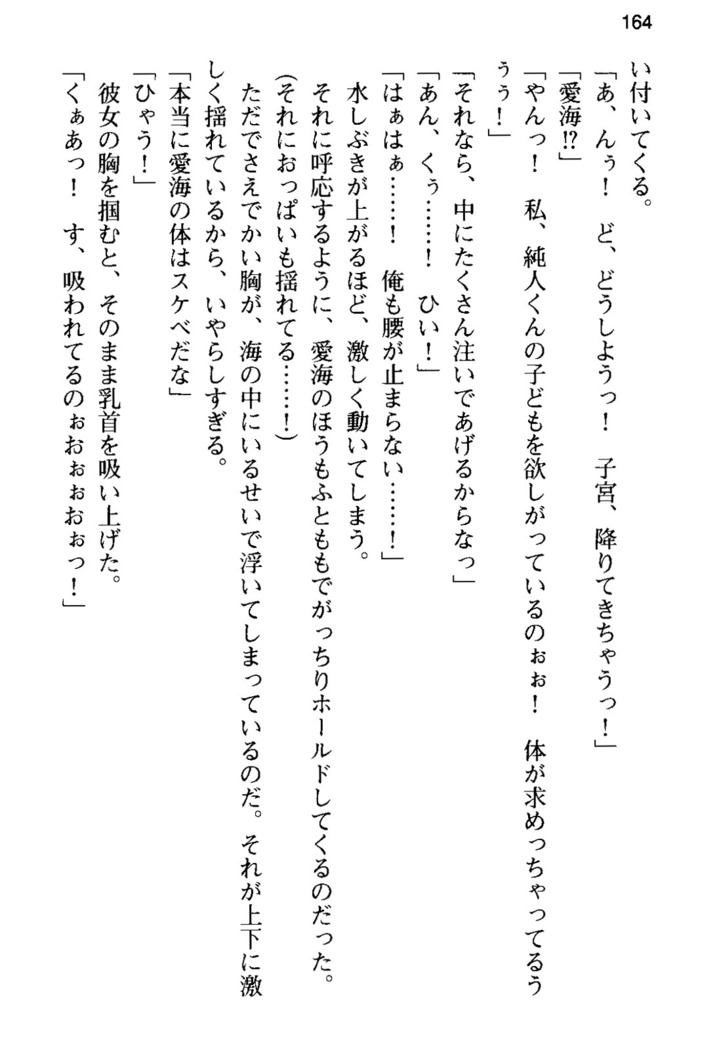 164
い付いてくる。
「あ、んぅ！　ど、どうしようっ！　子宮、降りてきちゃうっ！」
「愛海!?」
「やんっ！　私、純人くんの子どもを欲しがっているのぉぉ！　体が求めっちゃってるう
ぅぅ！」
「それなら、中にたくさん注いであげるからなっ」
「あん、くぅ……！　ひい！」
「はぁはぁ……！　俺も腰が止まらない……！」
水しぶきが上がるほど、激しく動いてしまう。
それに呼応するように、愛海のほうもふとももでがっちりホールドしてくるのだった。
(それにおっぱいも揺れてる……！)
ただでさえでかい胸が、海の中にいるせいで浮いてしまっているのだ。それが上下に激
しく揺れているから、いやらしすぎる。
「本当に愛海の体はスケベだな」
「ひゃう！」
彼女の胸を掴むと、そのまま乳首を吸い上げた。
「くぁあっ！　す、吸われてるのぉおぉぉおぉっ！」